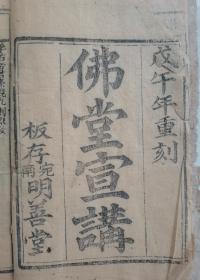 戊午年重刻
佛堂宣講
板存宛南明善堂